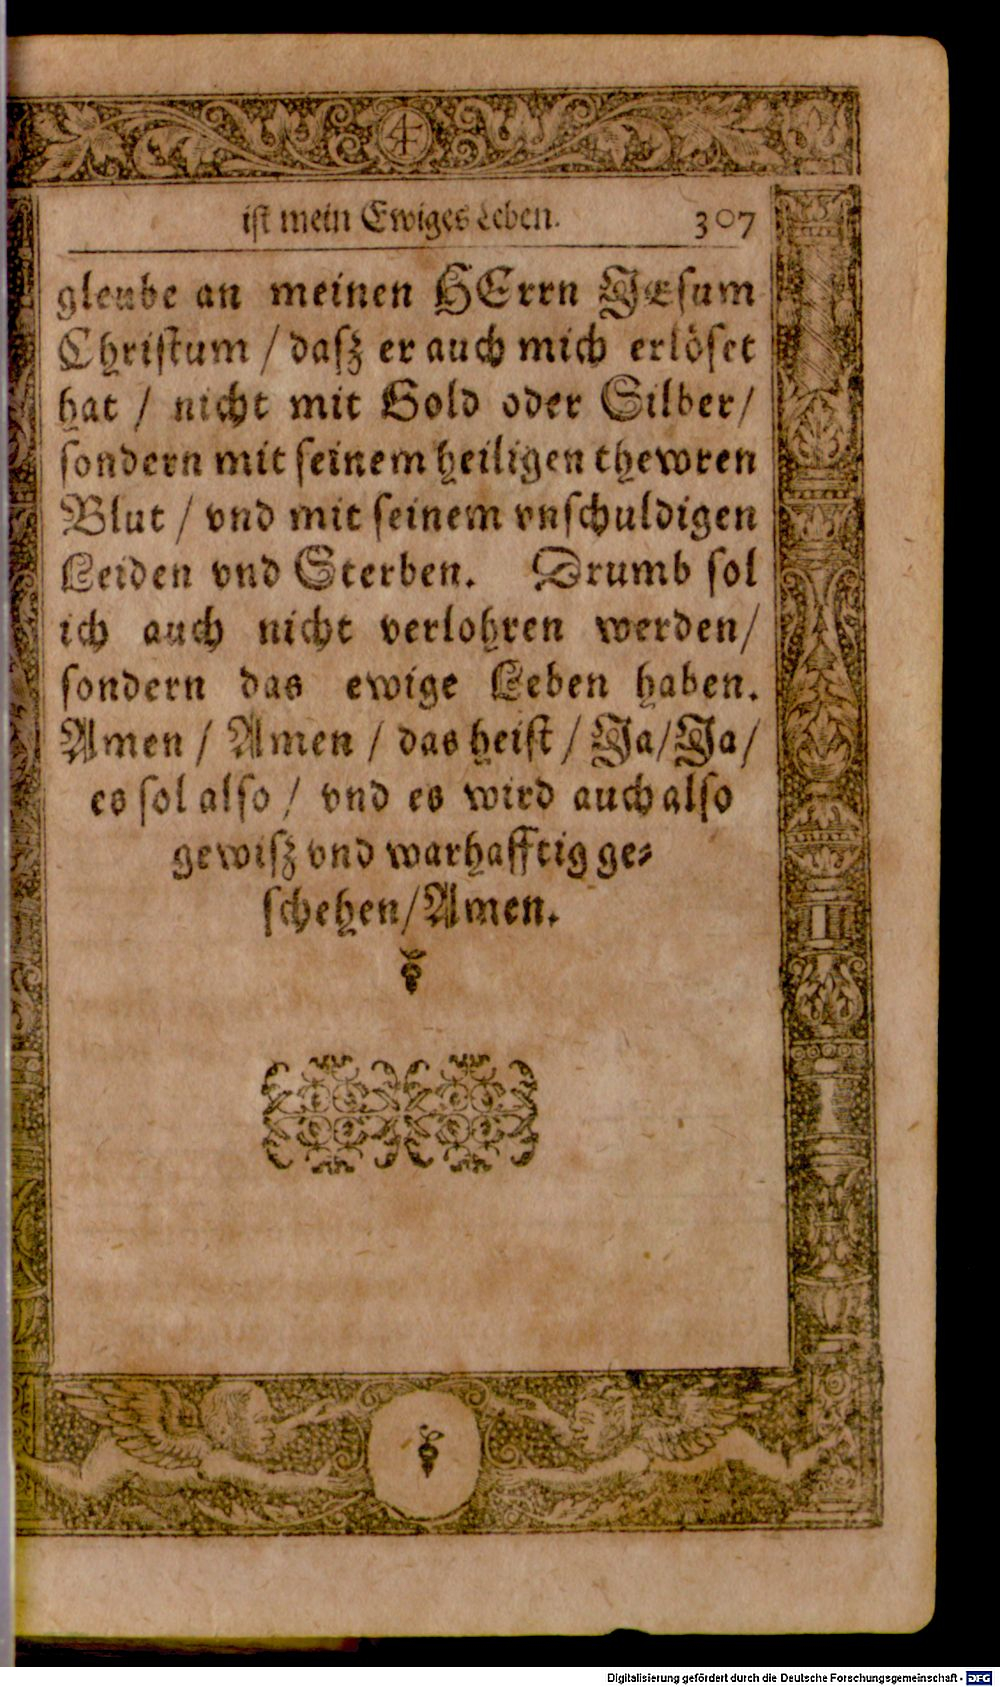 ist mein Ewiges Leben. 307
gleube an meinen HErrn JEsum
Christum / dasz er auch mich erlöset
hat / nicht mit Gold oder Silber /
sondern mit seinem heiligen thewren
Blut / vnd mit seinem vnschuldigen
Leiden vnd Sterben. Drumb sol
ich auch nicht verlohren werden /
sondern das ewige Leben haben.
Amen / Amen / das heist / Ja / Ja /
es sol also / vnd es wird auch also
gewisz vnd warhafftig ge⸗
schehen / Amen.
Digitalisierung gefördert durch die Deutsche Forschungsgemeinschaft - DFG